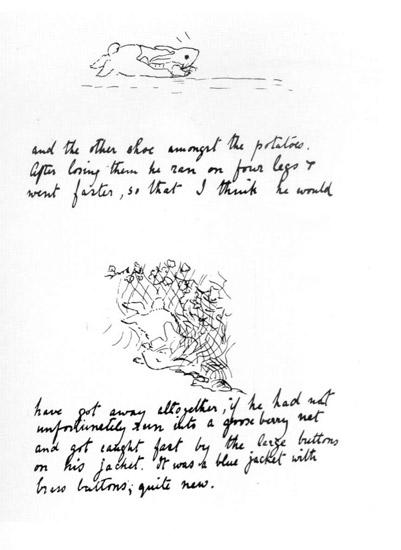 and the other shoe amongst the potatoes.
After losing them he ran on four legs &
went faster, so that I think he would
have got away altogether, if he had not
unfortunately run into a gooseberry net
and got caught fast by the large buttons
on his jacket. It was a blue jacket with
brass buttons; quite new.